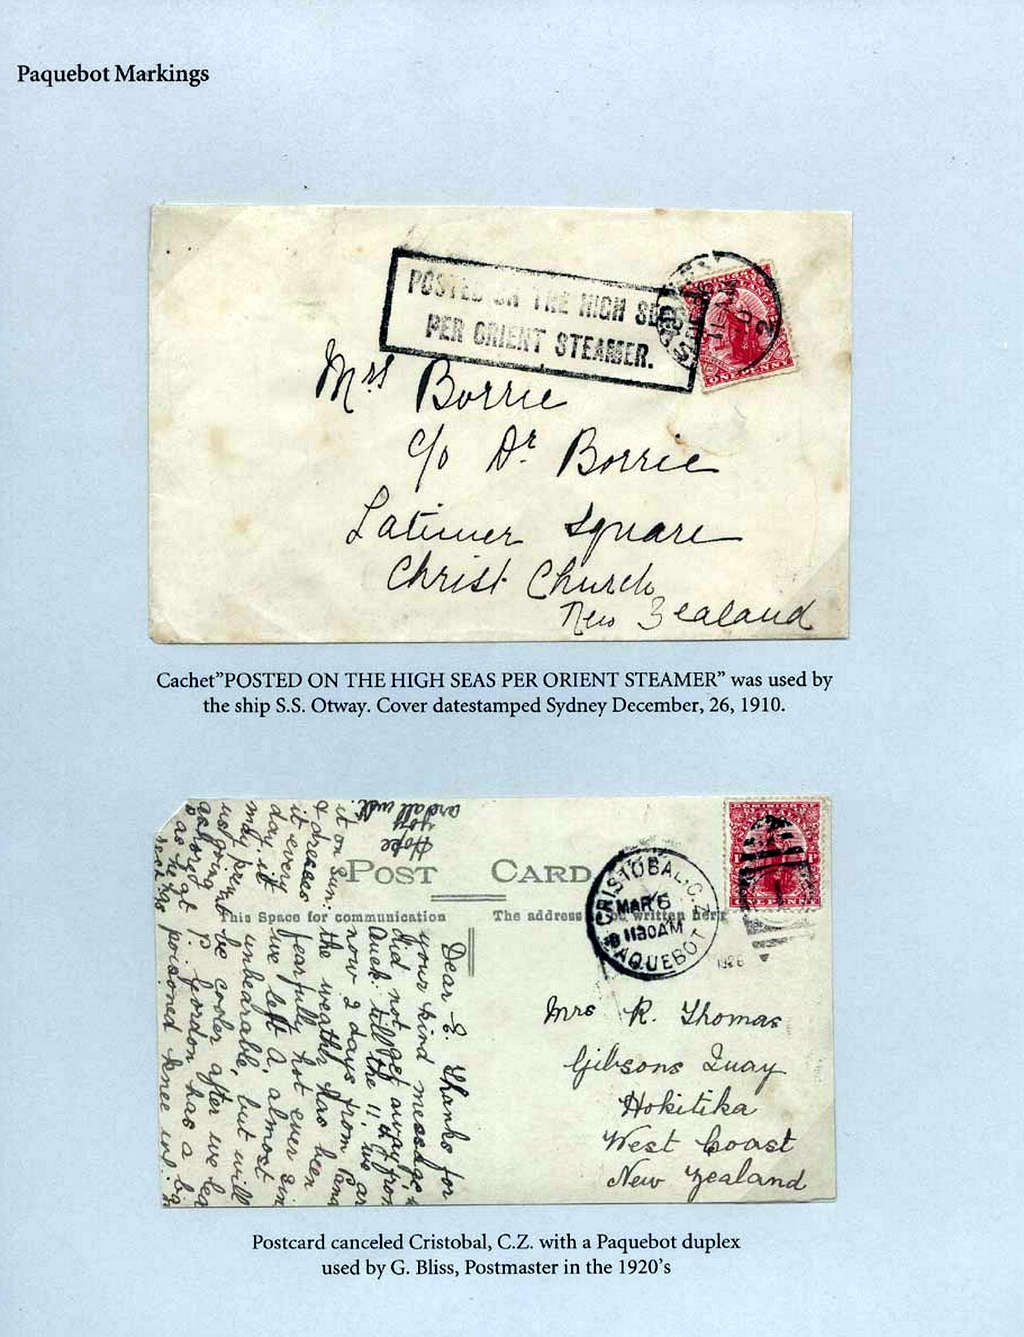 Paquebot Markings
POSTED ON THE HIGH SEAS
PER ORIENT STEAMER.
ONE PENNY
Mrs Borrie
c/o Dr Borrie
Latimer Square
Christ Church
New Zealand
Cachet"POSTED ON THE HIGH SEAS PER ORIENT STEAMER" was used by
the ship S.S. Otway. Cover datestamped Sydney December, 26, 1910.
POST CARD
This Space for communication
The address be written here
CRISTOBAL, C.Z.
MAR 6
1130AM
PAQUEBOT
1926
ONE PENNY
Dear E. Thanks for
your kind message
did not get away from
Auck. till the 11th
now 2 days from
the weather has been
fearfully hot ever
we left A, almost
unbearable, but will
be cooler after we
Gordon has a
poisoned knee
it on Sun.
& dresses
it every
day it
may
us going
Hope
you
are all well.
Mrs R. Thomas
Gibsons Quay
Hokitika
West Coast
New Zealand
Postcard canceled Cristobal, C.Z. with a Paquebot duplex
used by G. Bliss, Postmaster in the 1920's